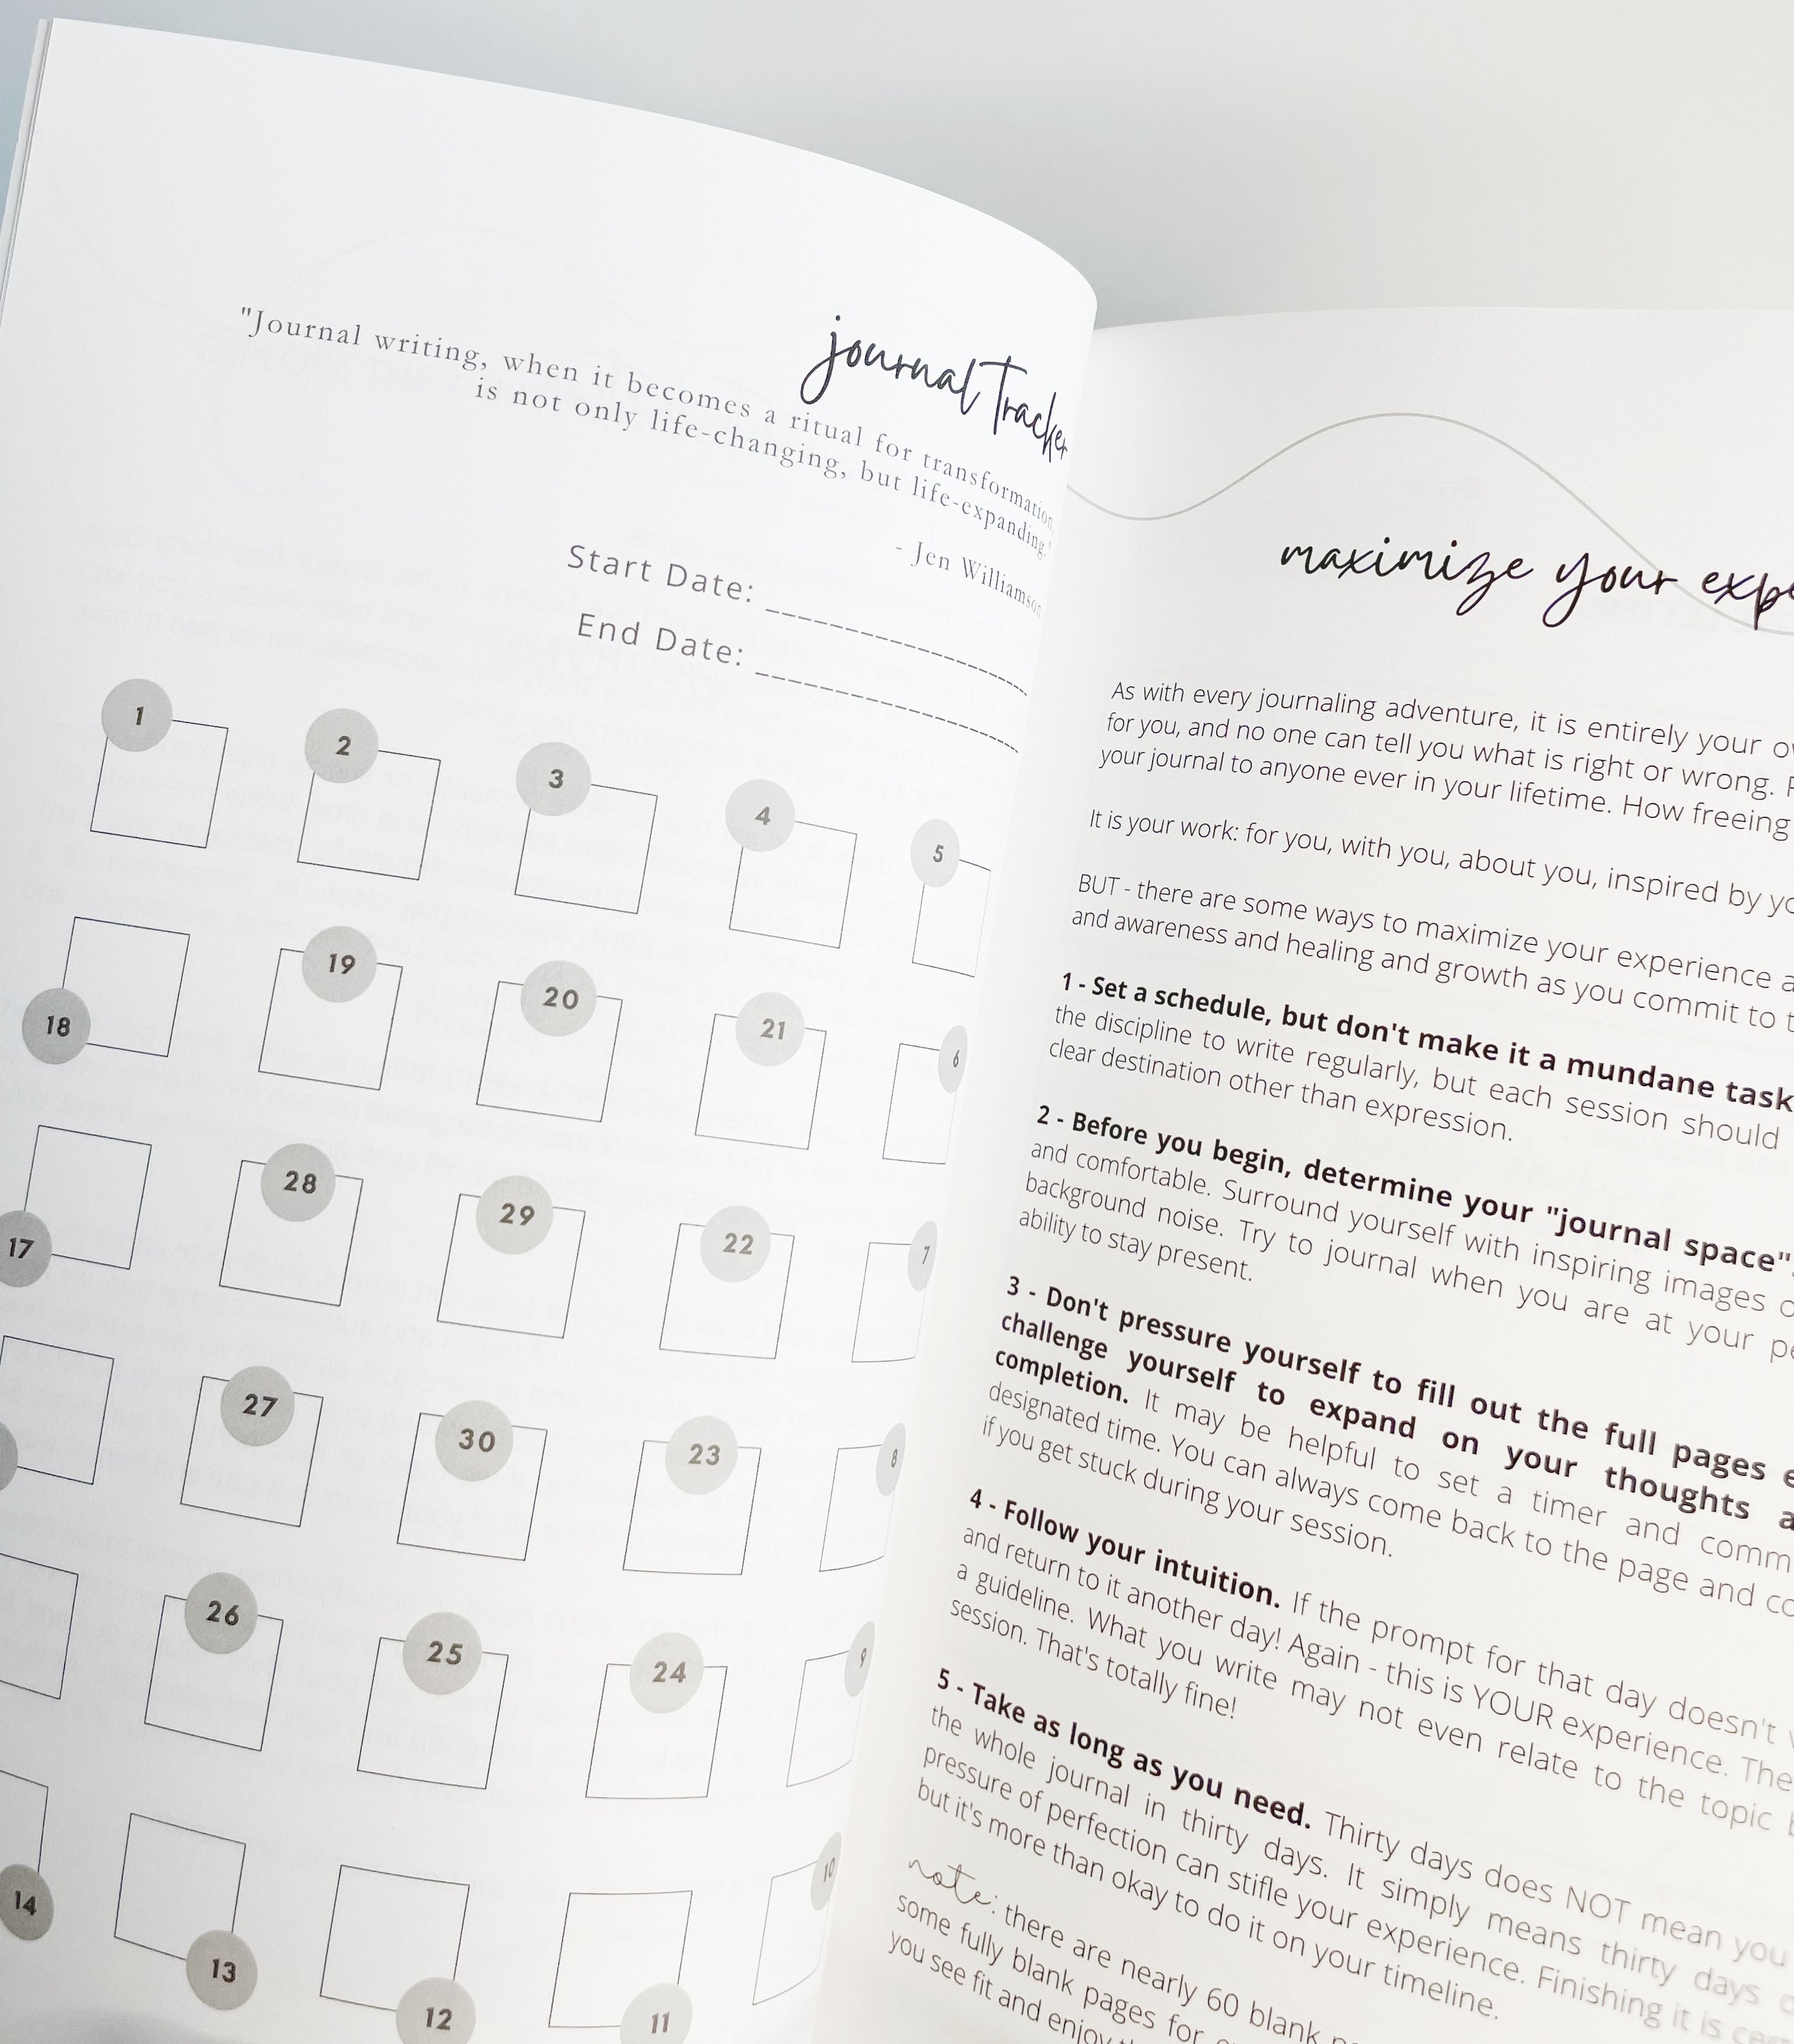 journal Tracker
"Journal writing, when it becomes a ritual for transformation,
is not only life-changing, but life-expanding."
- Jen Williamson
Start Date:
End Date:
1 2 3 4 5
18 19 20 21 6
17 28 29 22 7
27 30 23 8
26 25 24 9
14 13 12 11 10
maximize your
As with every journaling adventure, it is entirely your
for you, and no one can tell you what is right or wrong.
your journal to anyone ever in your lifetime. How freeing
It is your work: for you, with you, about you, inspired by
BUT - there are some ways to maximize your experience
and awareness and healing and growth as you commit to
1 - Set a schedule, but don't make it a mundane task
the discipline to write regularly, but each session should
clear destination other than expression.
2 - Before you begin, determine your "journal space".
and comfortable. Surround yourself with inspiring images
background noise. Try to journal when you are at your
ability to stay present.
3 - Don't pressure yourself to fill out the full pages
challenge yourself to expand on your thoughts
completion. It may be helpful to set a timer and
designated time. You can always come back to the page and
if you get stuck during your session.
4 - Follow your intuition. If the prompt for that day doesn't
and return to it another day! Again - this is YOUR experience. The
a guideline. What you write may not even relate to the topic
session. That's totally fine!
5 - Take as long as you need. Thirty days does NOT mean you
the whole journal in thirty days. It simply means thirty days
pressure of perfection can stifle your experience. Finishing it is
but it's more than okay to do it on your timeline.
note: there are nearly 60 blank
some fully blank pages for
you see fit and enjoy